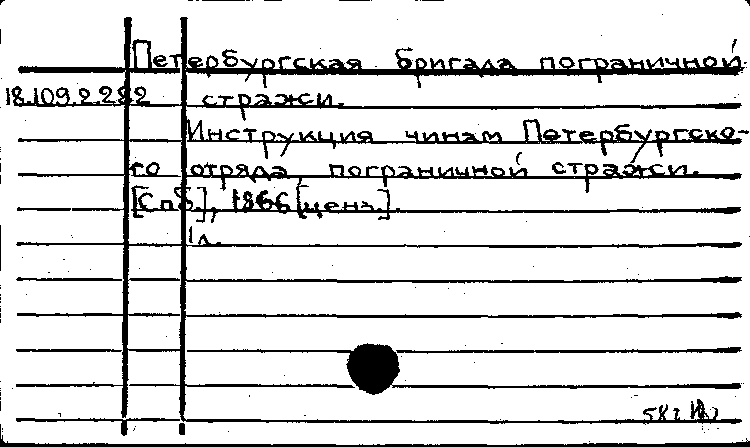 Петербургская бригада пограничной
18.109.2.282 стражи.
Инструкция чинам Петербургско-
го отряда пограничной стражи.
[Спб.], 1866 [ценз.].
1л.